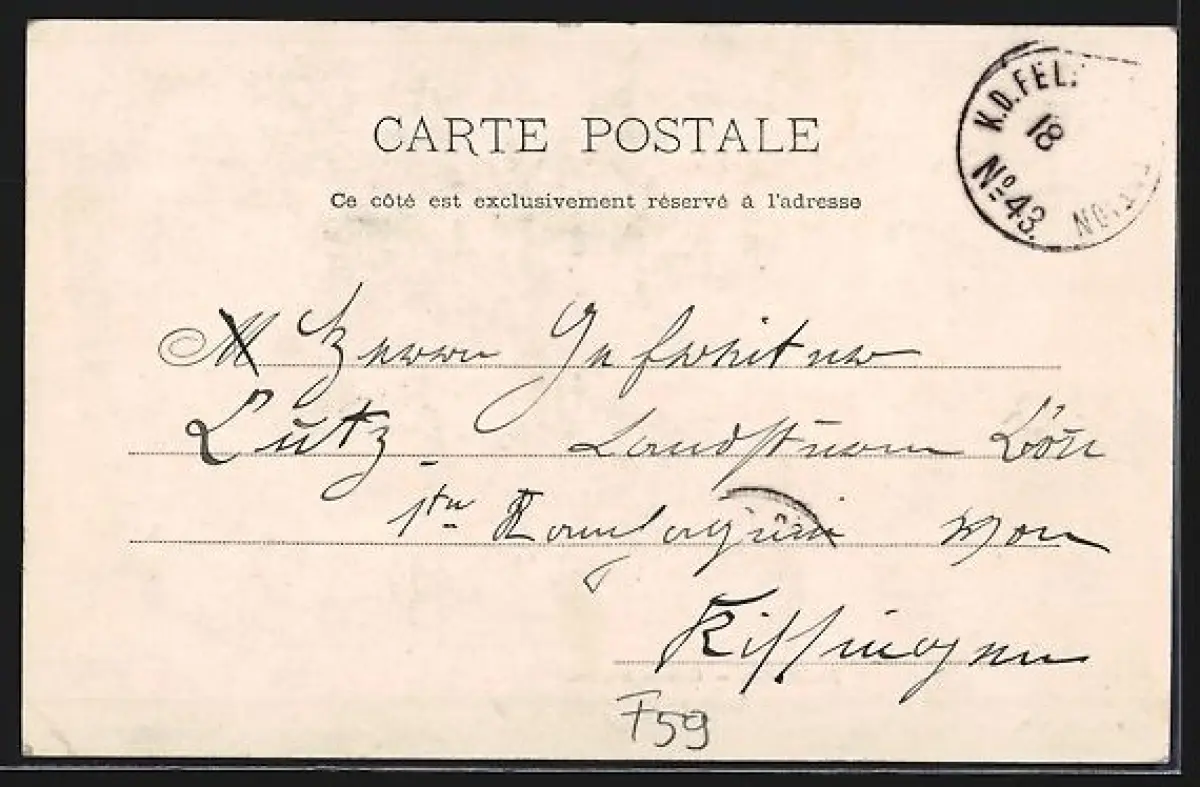 CARTE POSTALE
Ce côté est exclusivement réservé à l'adresse
K.D.FEL
18
No 43.
M Herrn Gefreiter
Lutz. Landsturm
1te Kompagnie von
Kissingen
F59